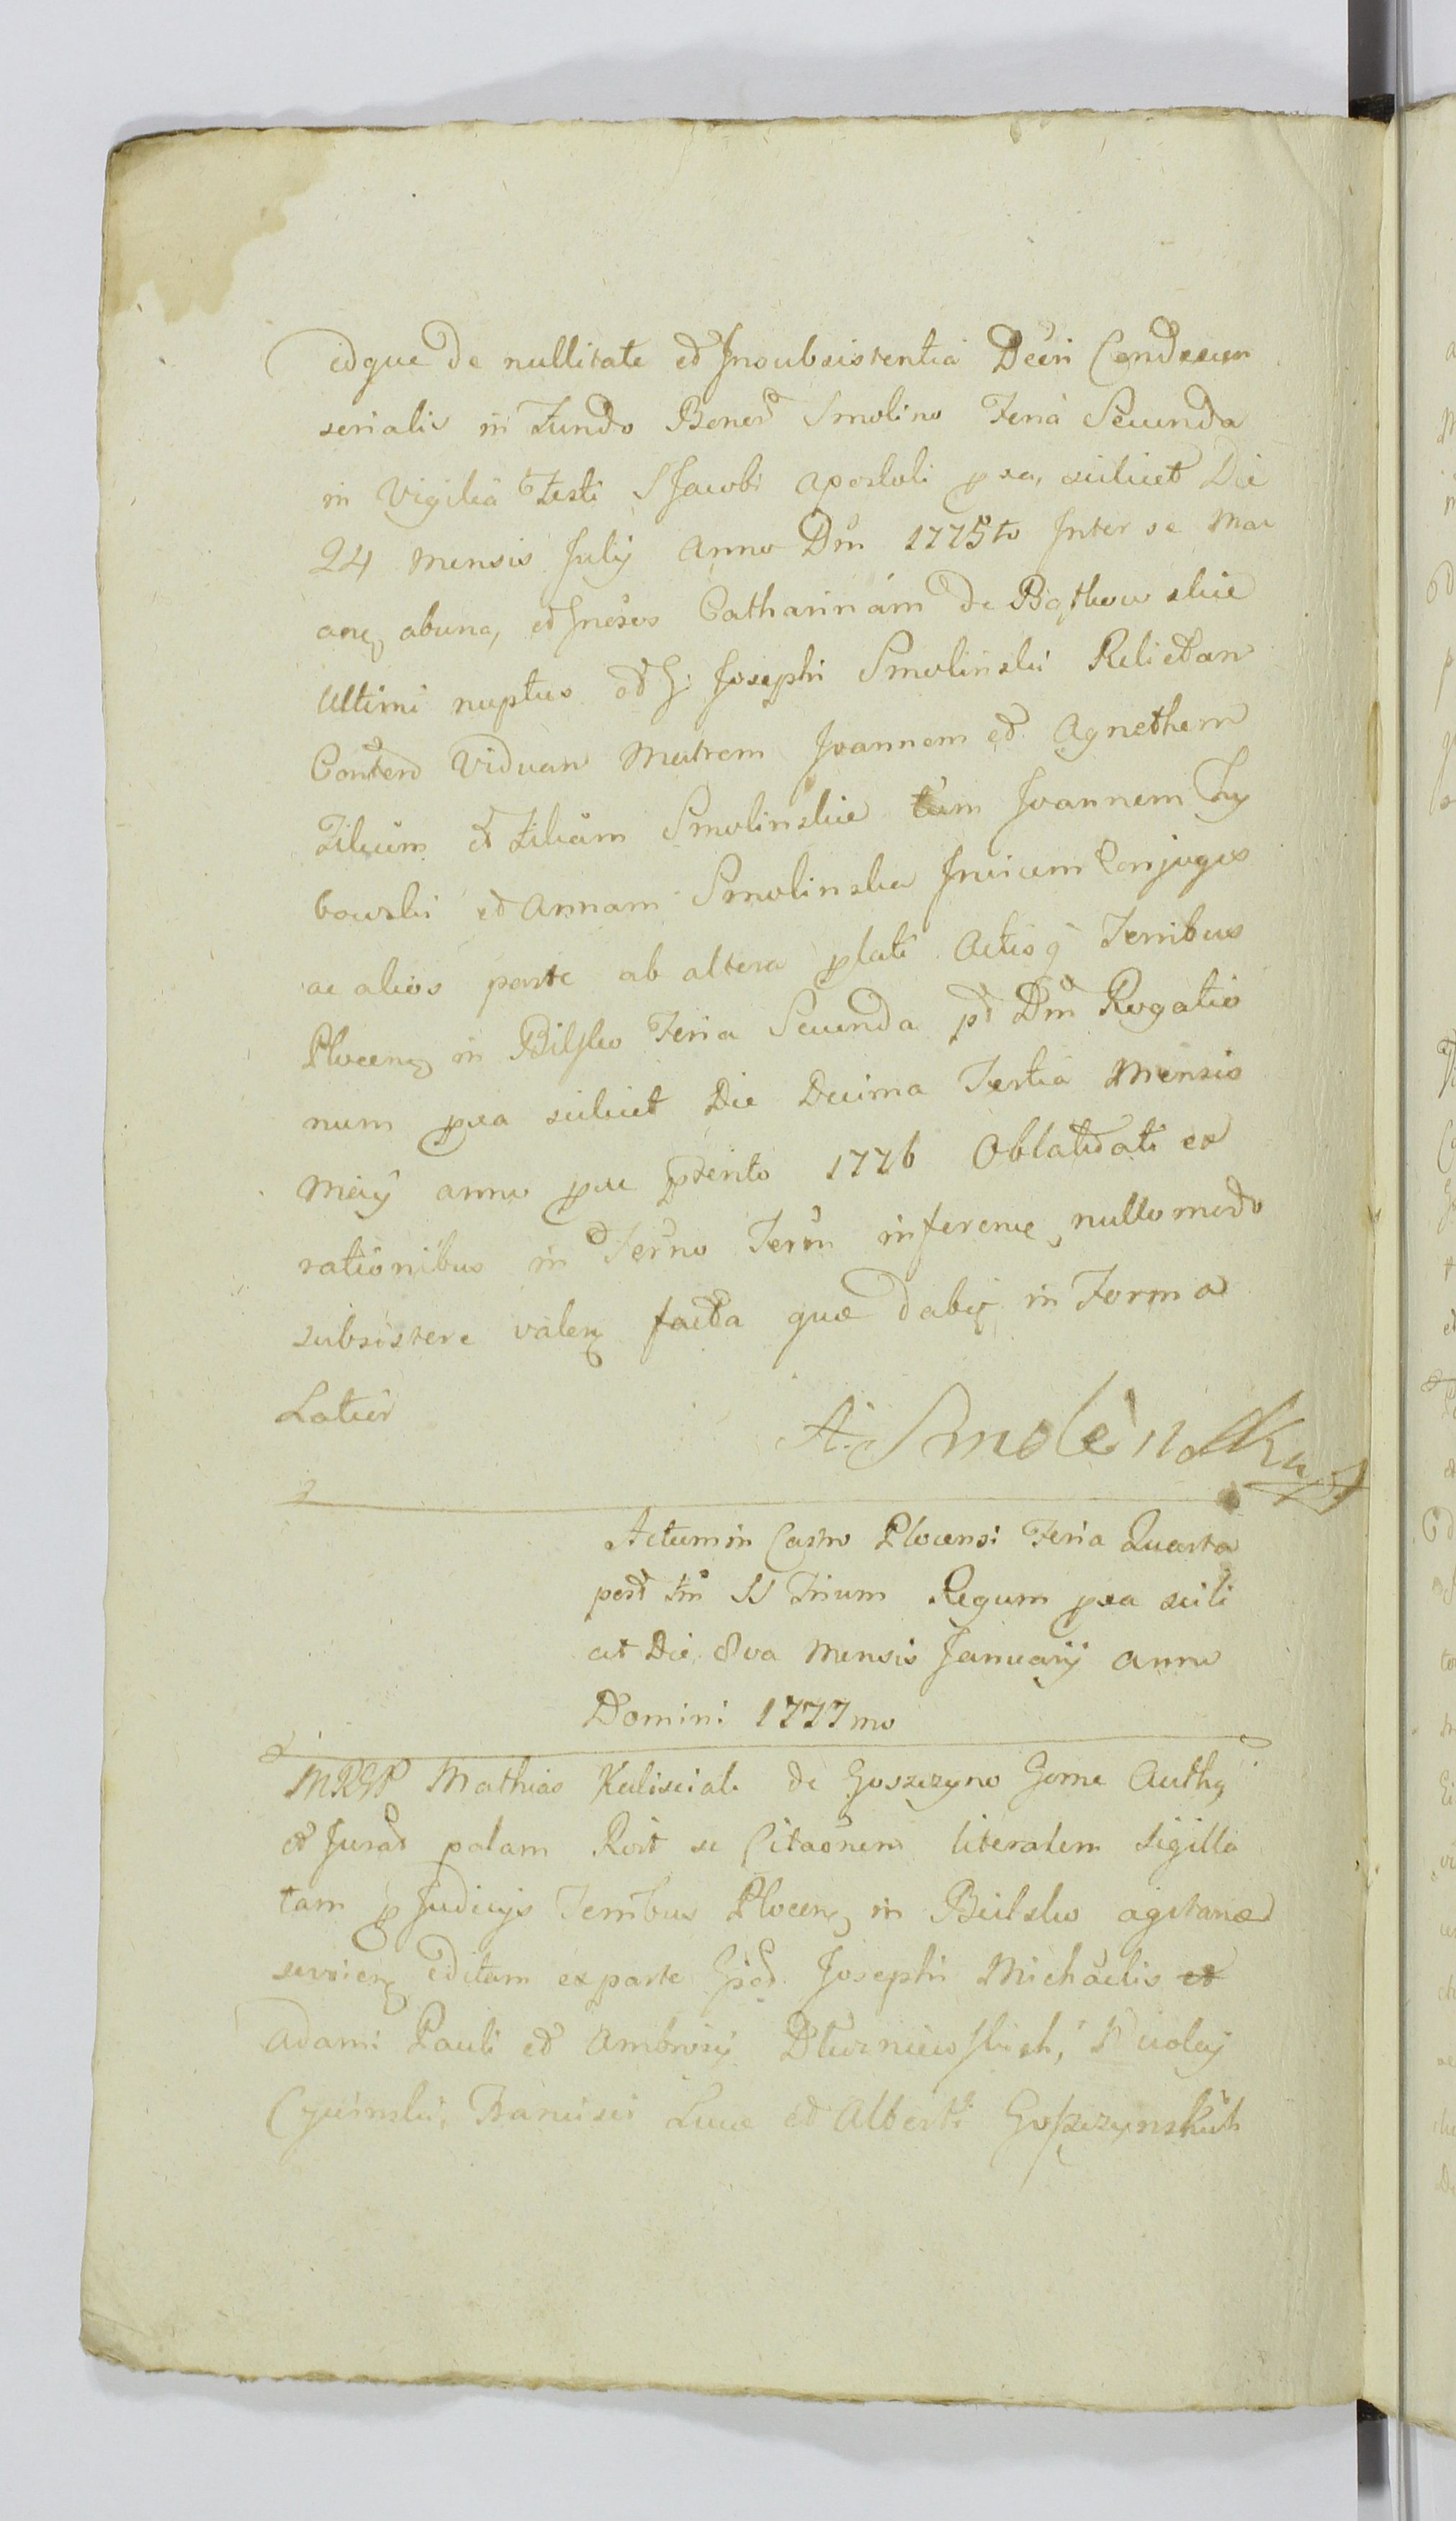 idque de nullitate et Insubsistentia Decri Condescen
serialis in Fundo Bonor Smolino Feria Secunda
in Vigilia Festi S Jacobi Apostoli pxa, scilicet Die
24 Mensis Julÿ Anno Dni 1775to Inter se Ma
anq, abuna, et Catharinam de
Ultimi nuptus et G: Josephi Smolinski Relictam
Viduam Matrem Joannem et Agnethem
Filium et Filiam Smolinskie tum Joannem Chy
bowski et Annam Smolinskie Invicem Conjuges
ac alios parte ab altera plati Actisq Terribus
Plocenq in Bilsko Feria Secunda pt Dm Rogatio
num pxa scilicet Die Decima Tertia Mensis
Maÿ anno pxe pterito 1776 Oblatidati ex
rationibus in Terno Term inferenq nullo modo
subsistere valenq facta quæ dabiq in Forma
Latior
A. Smoleńsk
Actum in Castro Plocensi Feria Quarta
post Fm SS Trium Regum pxa scili
cet Die 8va Mensis Januarÿ anno
Domini 1777mo
MRGP Mathias de Goszczyno Gorne Authq
et Jurat palam Rcit se Citaonem literalem Sigilla
tam p Judicÿs Terribus Plocenq in Bielsko agitand
servienq editam ex parte Josephi Michaelis et
Adami Pauli et Ambrosÿ
Francisci Lucæ et Alberti Goszczynskich